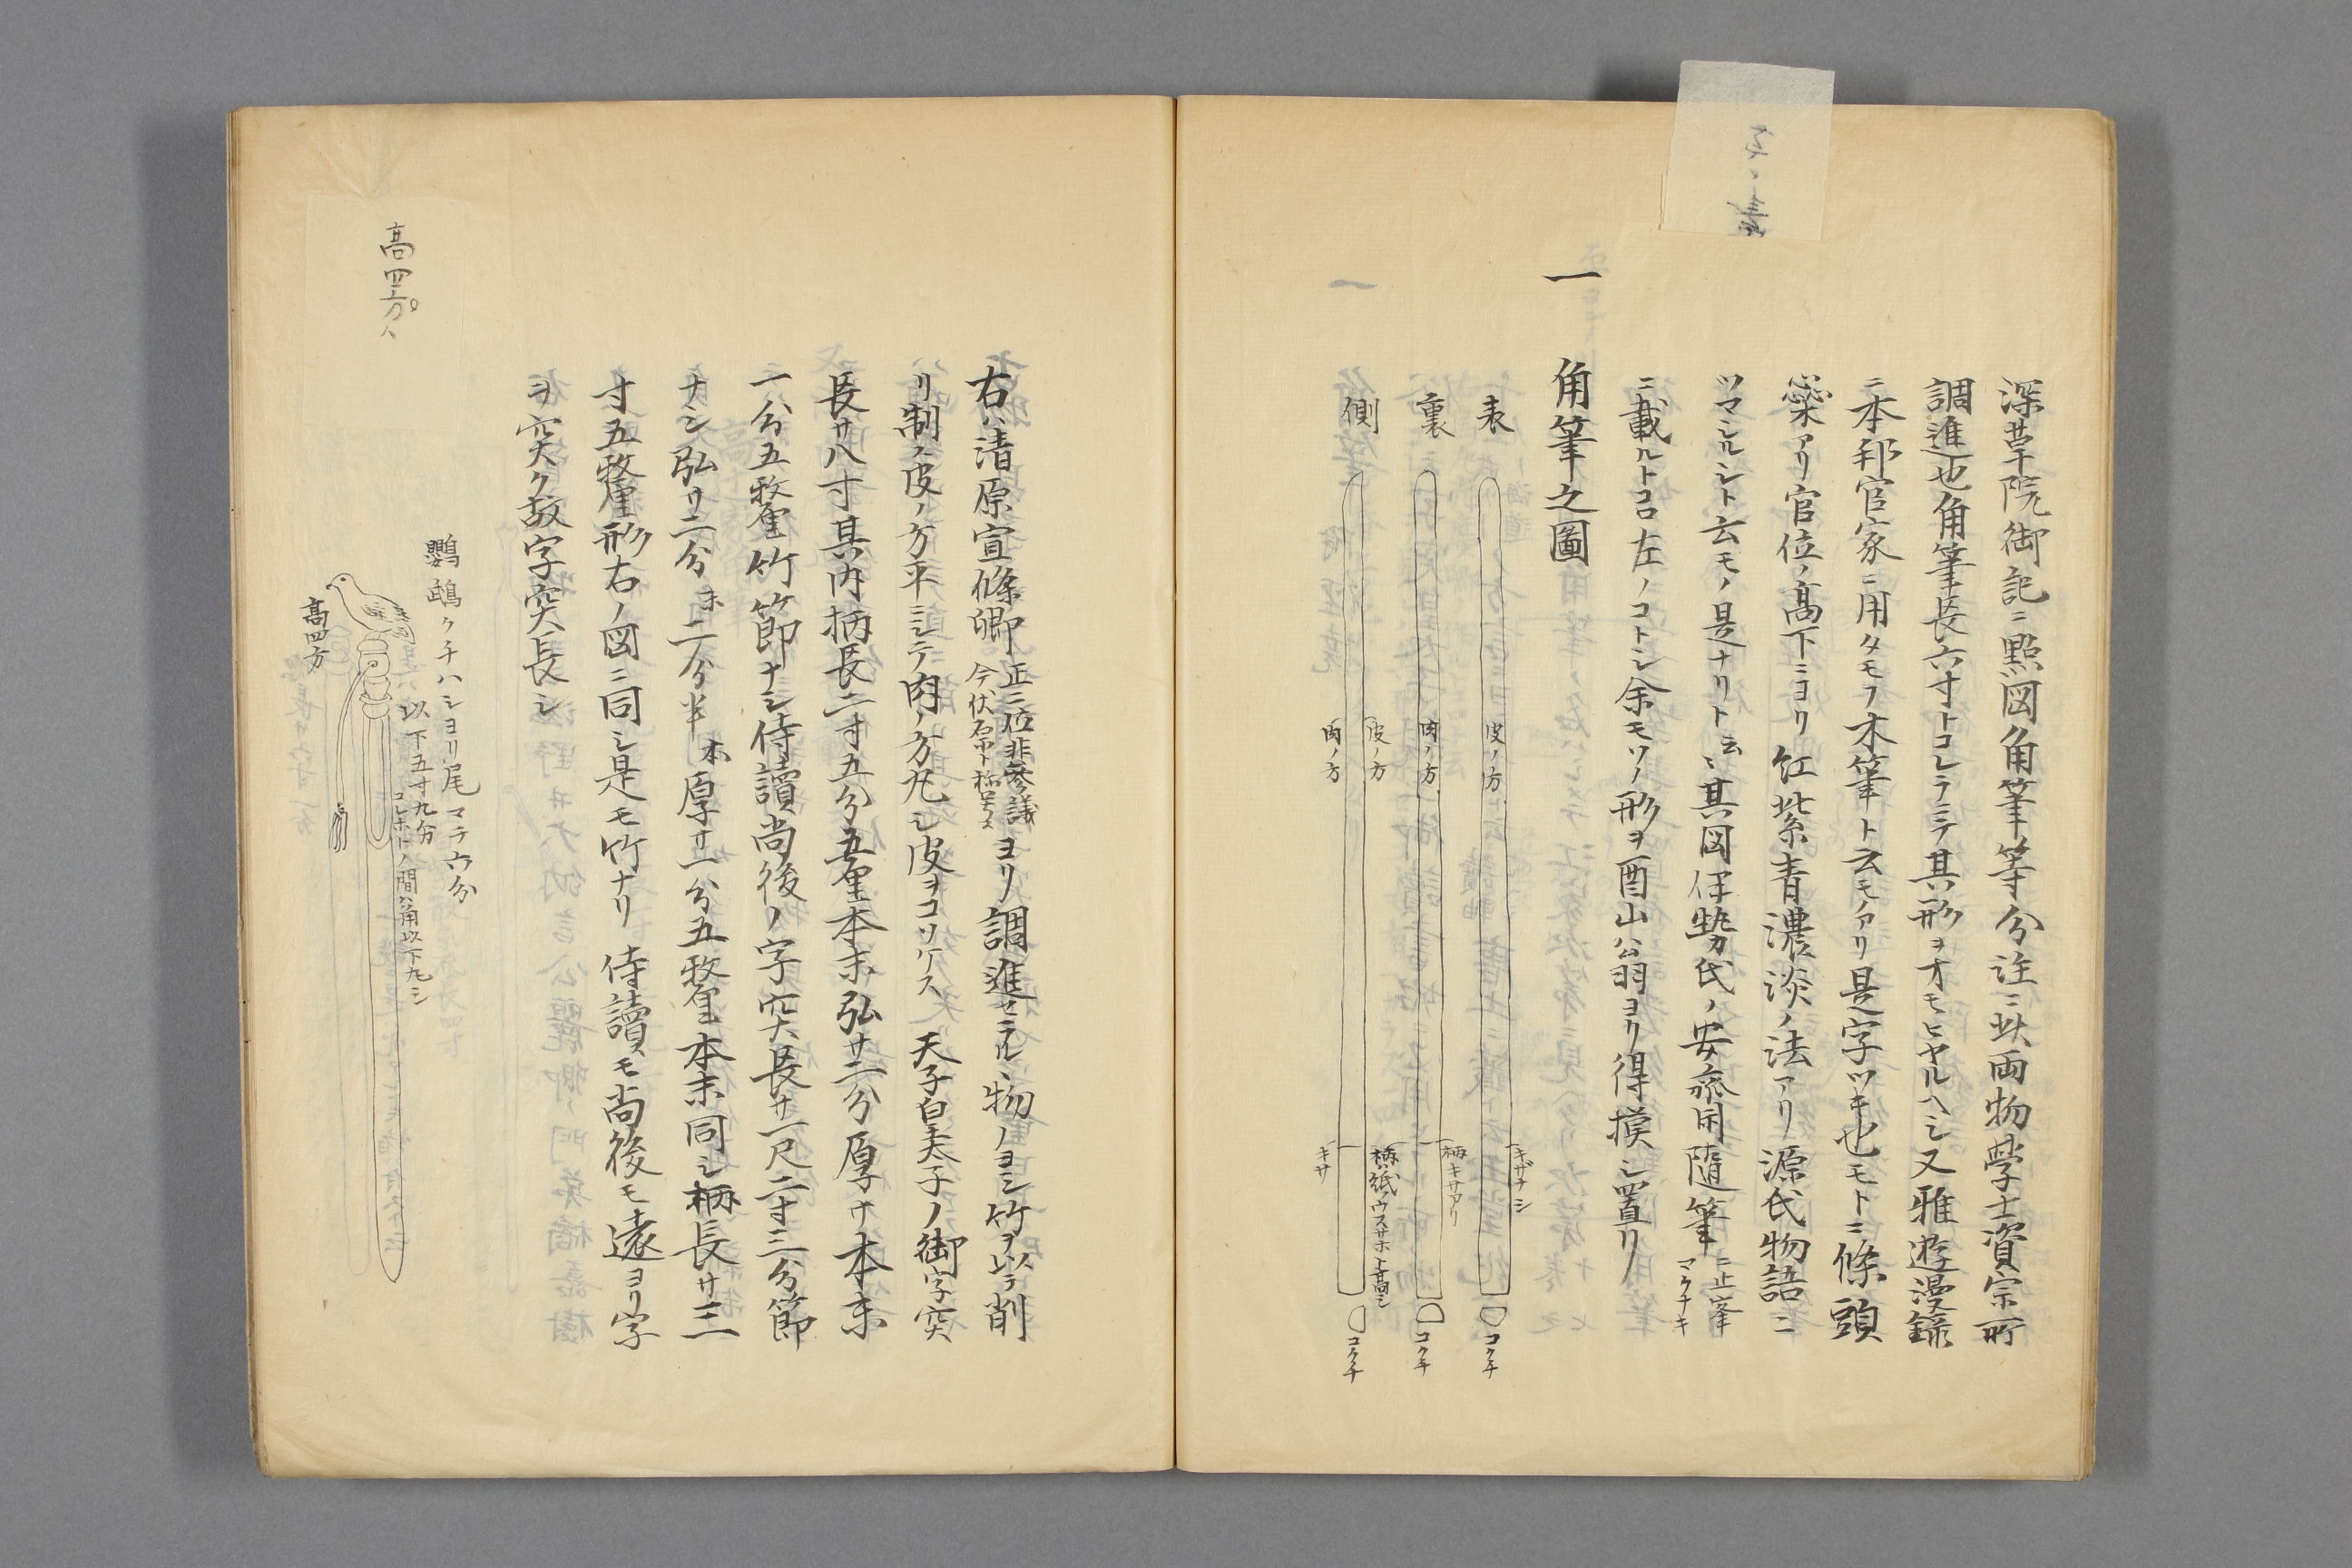 深草院御記ニ點図角筆等分注ニ此両物学士資宗所
調進也角筆長六寸トコレラニテ其形ヲオモヒヤルヘシ又雅遊漫録
ニ本邦官家ニ用タモフ木筆ト云モノアリ是字ツキ也モトニ條頭
アリ官位ノ高下ニヨリ紅紫青濃淡ノ法アリ源氏物語ニ
ツマシルシト云モノ是ナリト云々其図伊勢氏ノ安斎閑随筆
ニ載ルトコロ左ノコトシ余モソノ形ヲ酉山公羽ヨリ得摸シ置リ
一 角筆之圖
表 皮ノ方 キザナシ コクチ
裏 肉ノ方 柄キサアリ コクチ
側 皮ノ方 肉ノ方 キサ コクチ
右ハ清原宣條卿 正三位非参議 今伏原ト称号ス ヨリ調進セラルヽ物ノヨシ竹ヲ以テ削
リ制ス皮ノ方平ミシテ肉ノ方丸シ皮ヲコソケス 天子皇太子ノ御字突
長サ八寸其内柄長二寸五分五厘本末弘サ二分厚サ本末
一分五釐竹節ナシ侍讀尚後ノ字突長サ一尺二寸三分節
ナシ弘サ二分末二分半本厚サ一分五釐本末同シ柄長サ三
寸五釐形右ノ図ニ同シ是モ竹ナリ 侍讀モ尚後モ遠ヨリ字
ヲ突ク故字突長シ
鸚鵡クチハシヨリ尾マテ六分
以下五寸九分
コレホトノ間ハ角以下丸シ
高四方
高四方ハ